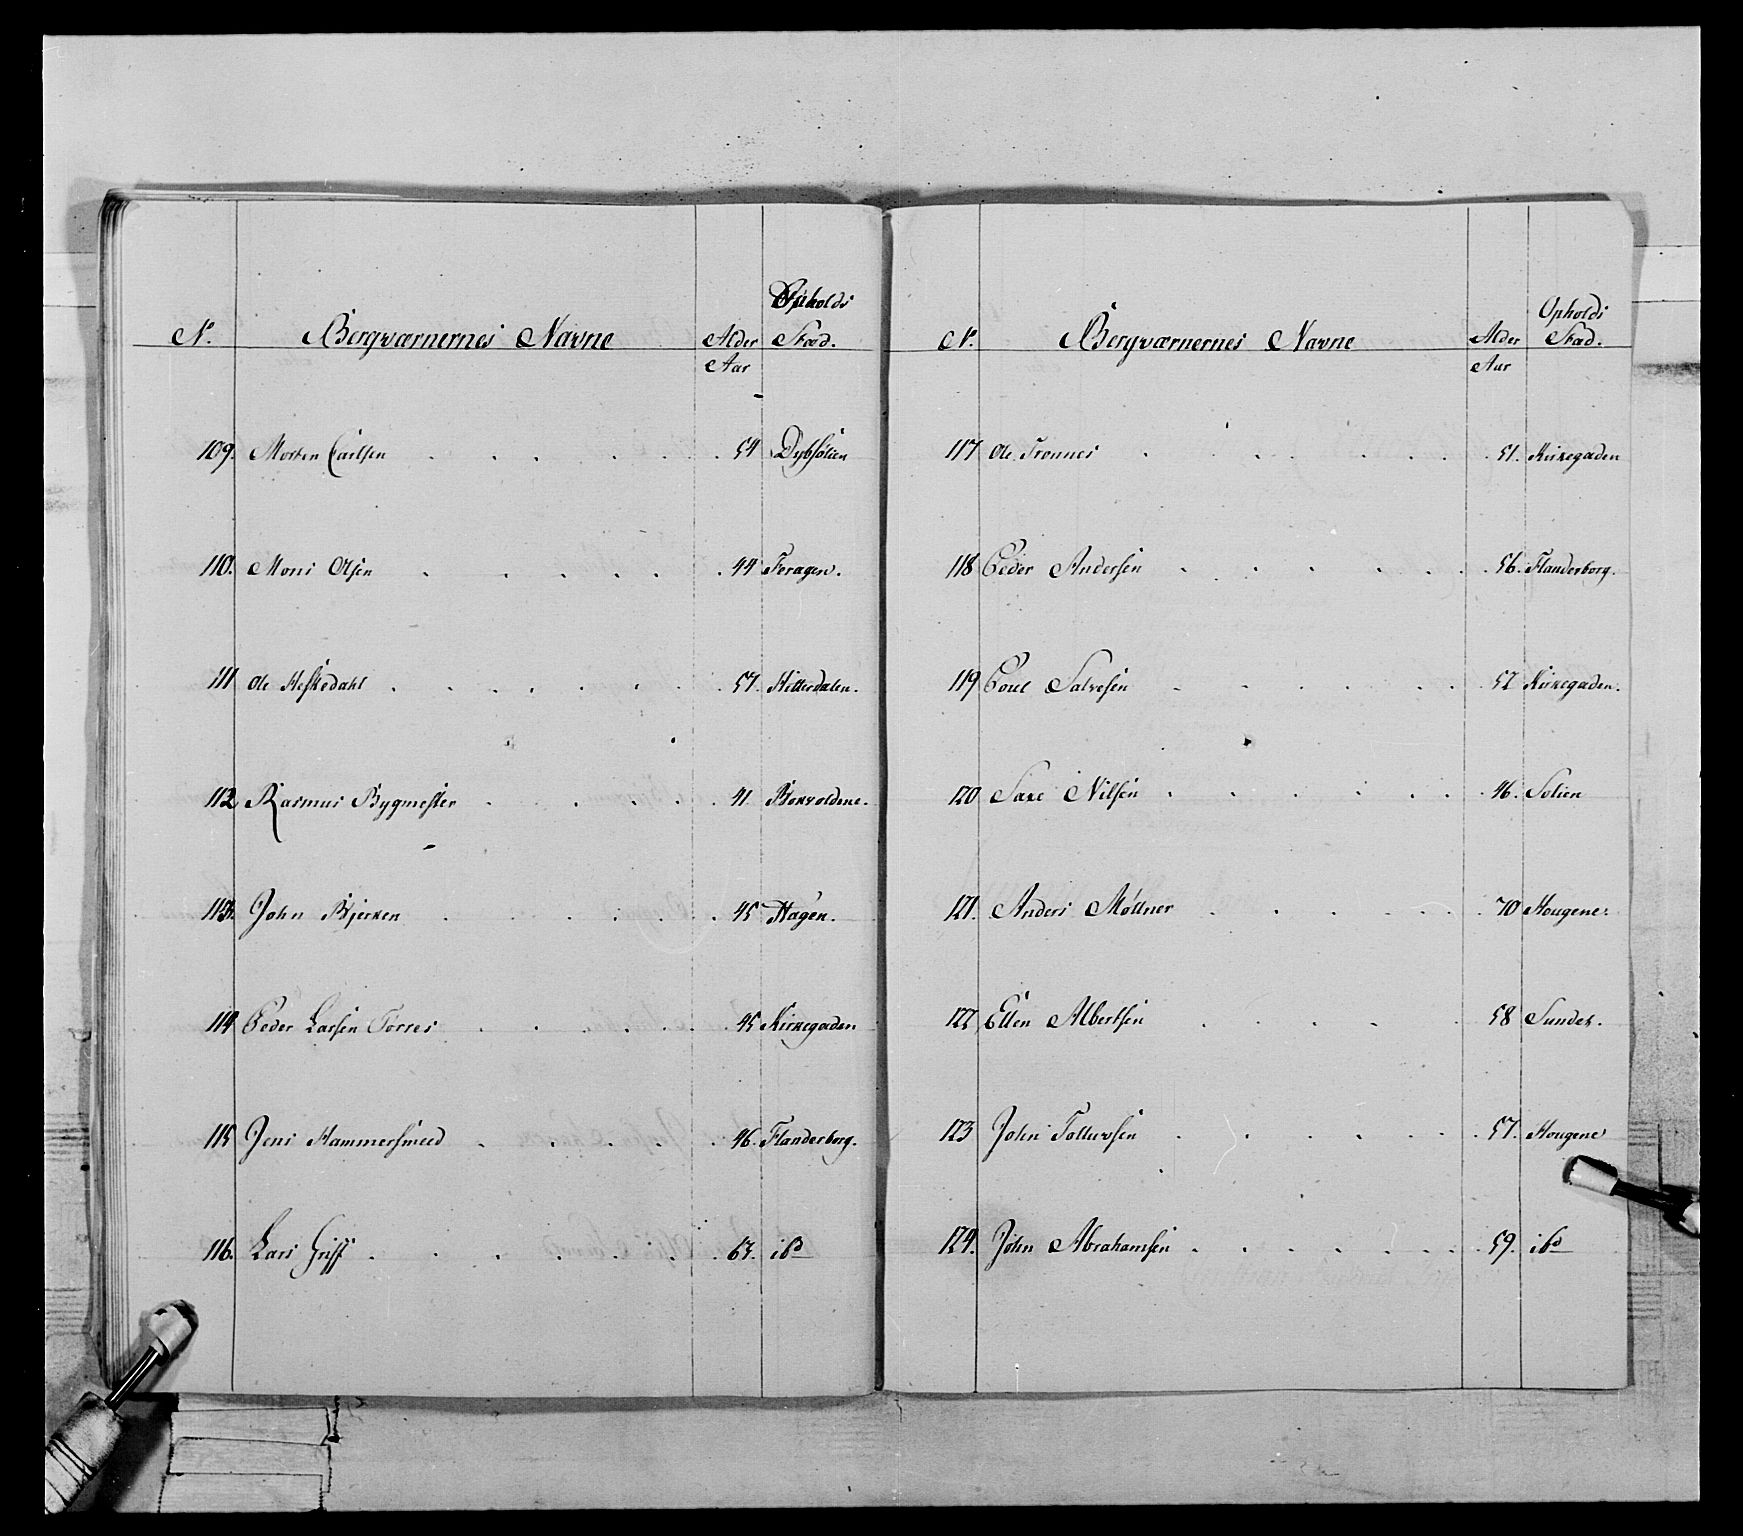 Opholds
N.º Bergværnernes Navne Alder Stæd.
Aar
109. Morten Carlsen 54 Dybsölien
110. Mons Olsen 44 Feragen.
111 Ole Heskedahl 57. Hitterdalen.
112 Rasmus Bygmester 41 Borvoldene.
113. John Bjerken 45 Hagen.
114 Peder Larsen Torres 45 Kirkegaden
115 Jens Hammersmed 46. Flanderborg.
116. Lars Griff 63. ibd
Opholds
N.º Bergværnernes Navne Alder Stæd.
Aar
117 Ole Trønnes 51. Kirkegaden
118 Peder Andersen 56. Flanderborg.
119 Poul Salvesen 52 Kirkegaden.
120 Saxe Nilsen 46. Solien
121. Anders Møllner 70 Hougene.
122 Ellen Albertsen 58 Sundet.
123 John Tollevsen 57. Hougene
124. John Abrahamsen 59. ibd